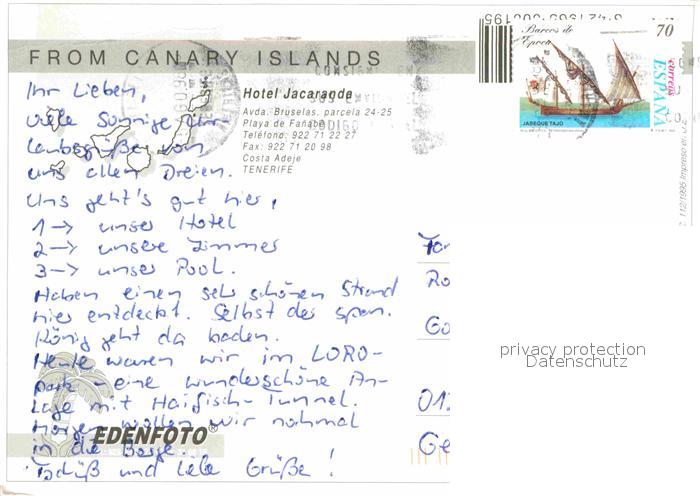 FROM CANARY ISLANDS
Barcos de
Epoca
70
correos
ESPAÑA
JABEQUE TAJO
Ihr Lieben,
viele sonnige Ur-
laubsgrüße von
uns allen Dreien.
Uns geht's gut hier,
1 → unser Hotel
2 → unsere Zimmer
3 → unser Pool.
Haben einen sehr schönen Strand
hier entdeckt. Selbst der span.
König geht da baden.
Heute waren wir im LORO-
park - eine wunderschöne An-
lage mit Haifisch-Tunnel.
Morgen wollen wir nochmal
in die Berge.
Tschüß und liebe Grüße!
Hotel Jacaranda
Avda. Bruselas, parcela 24-25
Playa de Fañabé
Teléfono: 922 71 22 27
Fax: 922 71 20 98
Costa Adeje
TENERIFE
Fam
Ro
Go
012
Ge
EDENFOTO®
privacy protection
Datenschutz